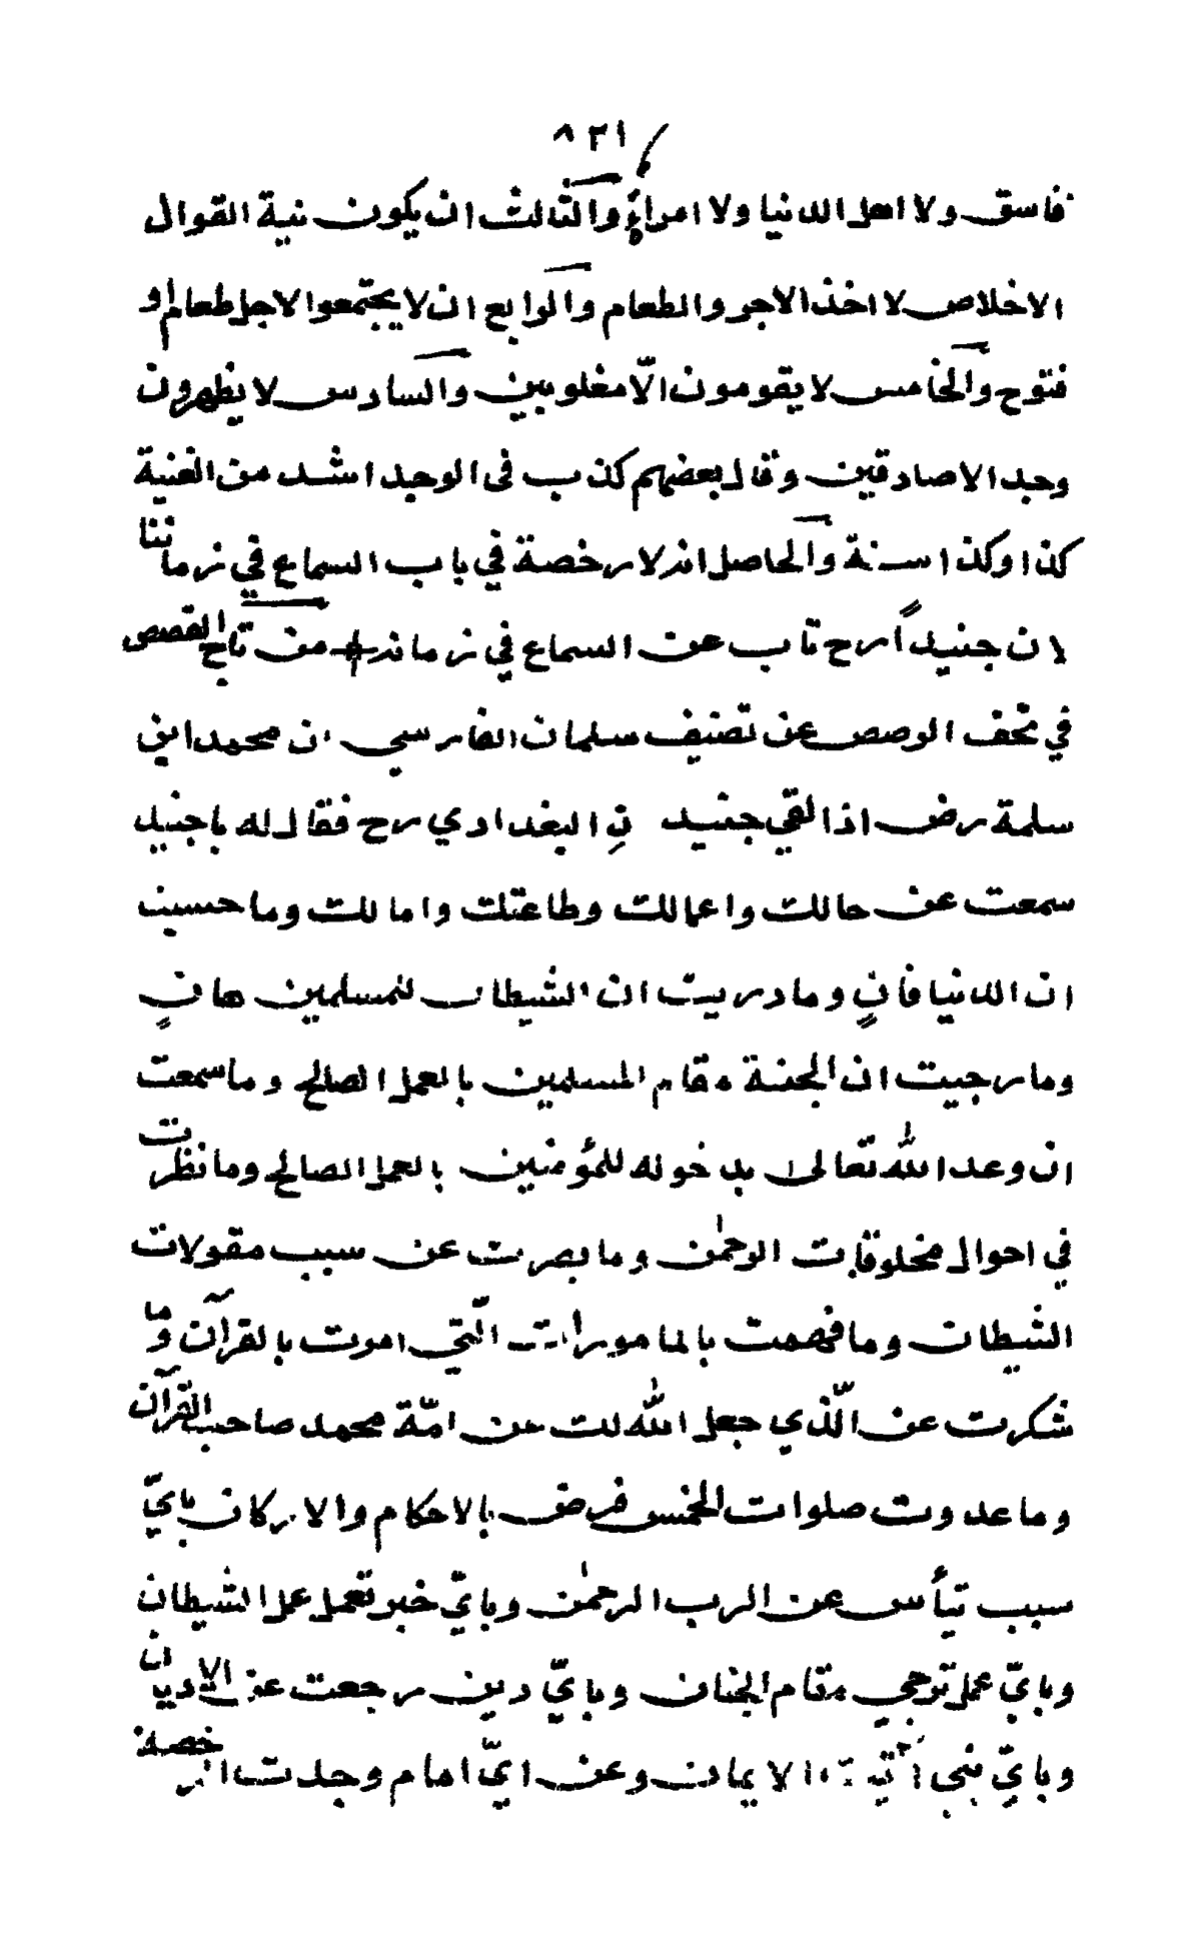 ٨٢١
فاسق ولا اهل الدنيا ولا امراءةٍ والثالث ان يكون نية القوال
الاخلاص لا اخذ الاجر والطعام والرابع ان لا يجتمعوا لاجل طعام او
فتوح والخامس لا يقومون الّا مغلوبين والسادس لا يظهرون
وجد الا صادقين وقال بعضهم كذب فى الوجد اشد من الغيبة
كذا وكذا سنة والحاصل انه لا رخصة في باب السماع في زماننا
لان جنيداً رح تاب عن السماع في زمانه من تاج القصص
في تحف الوصص عن تصنيف سلمان الفارسي ان محمد ابن
سلمة رض اذا لقي جنيد نِ البغدادي رح فقال له يا جنيد
سمعت عن حالك واعمالك وطاعتك وامالك وما حسبت
ان الدنيا فانٍ وما دريت ان الشيطان للمسلمين هانٍ
وما رجيت ان الجنة مقام المسلمين بالعمل الصالح وما سمعت
ان وعد الله تعالى بدخوله للمؤمنين بالعمل الصالح وما نظرت
في احوال مخلوقات الرحمٰن وما بصرت عن سبب مقولات
الشيطان وما فهمت بالمامورات الّتي امرت بالقرآن وما
شكرت عن الّذي جعل الله لك من امّة محمد صاحب القرآن
وما عدوت صلوات الخمس فرض بالاحكام والاركان بايّ
سبب تيأس عن الرب الرحمٰن وبايّ خبر تعمل عمل الشيطان
وبايّ عمل ترجي مقام الجنان وبايّ دين رجعت عن الاديان
وبايّ الايمان وعن ايّ امام وجدت الرخصة